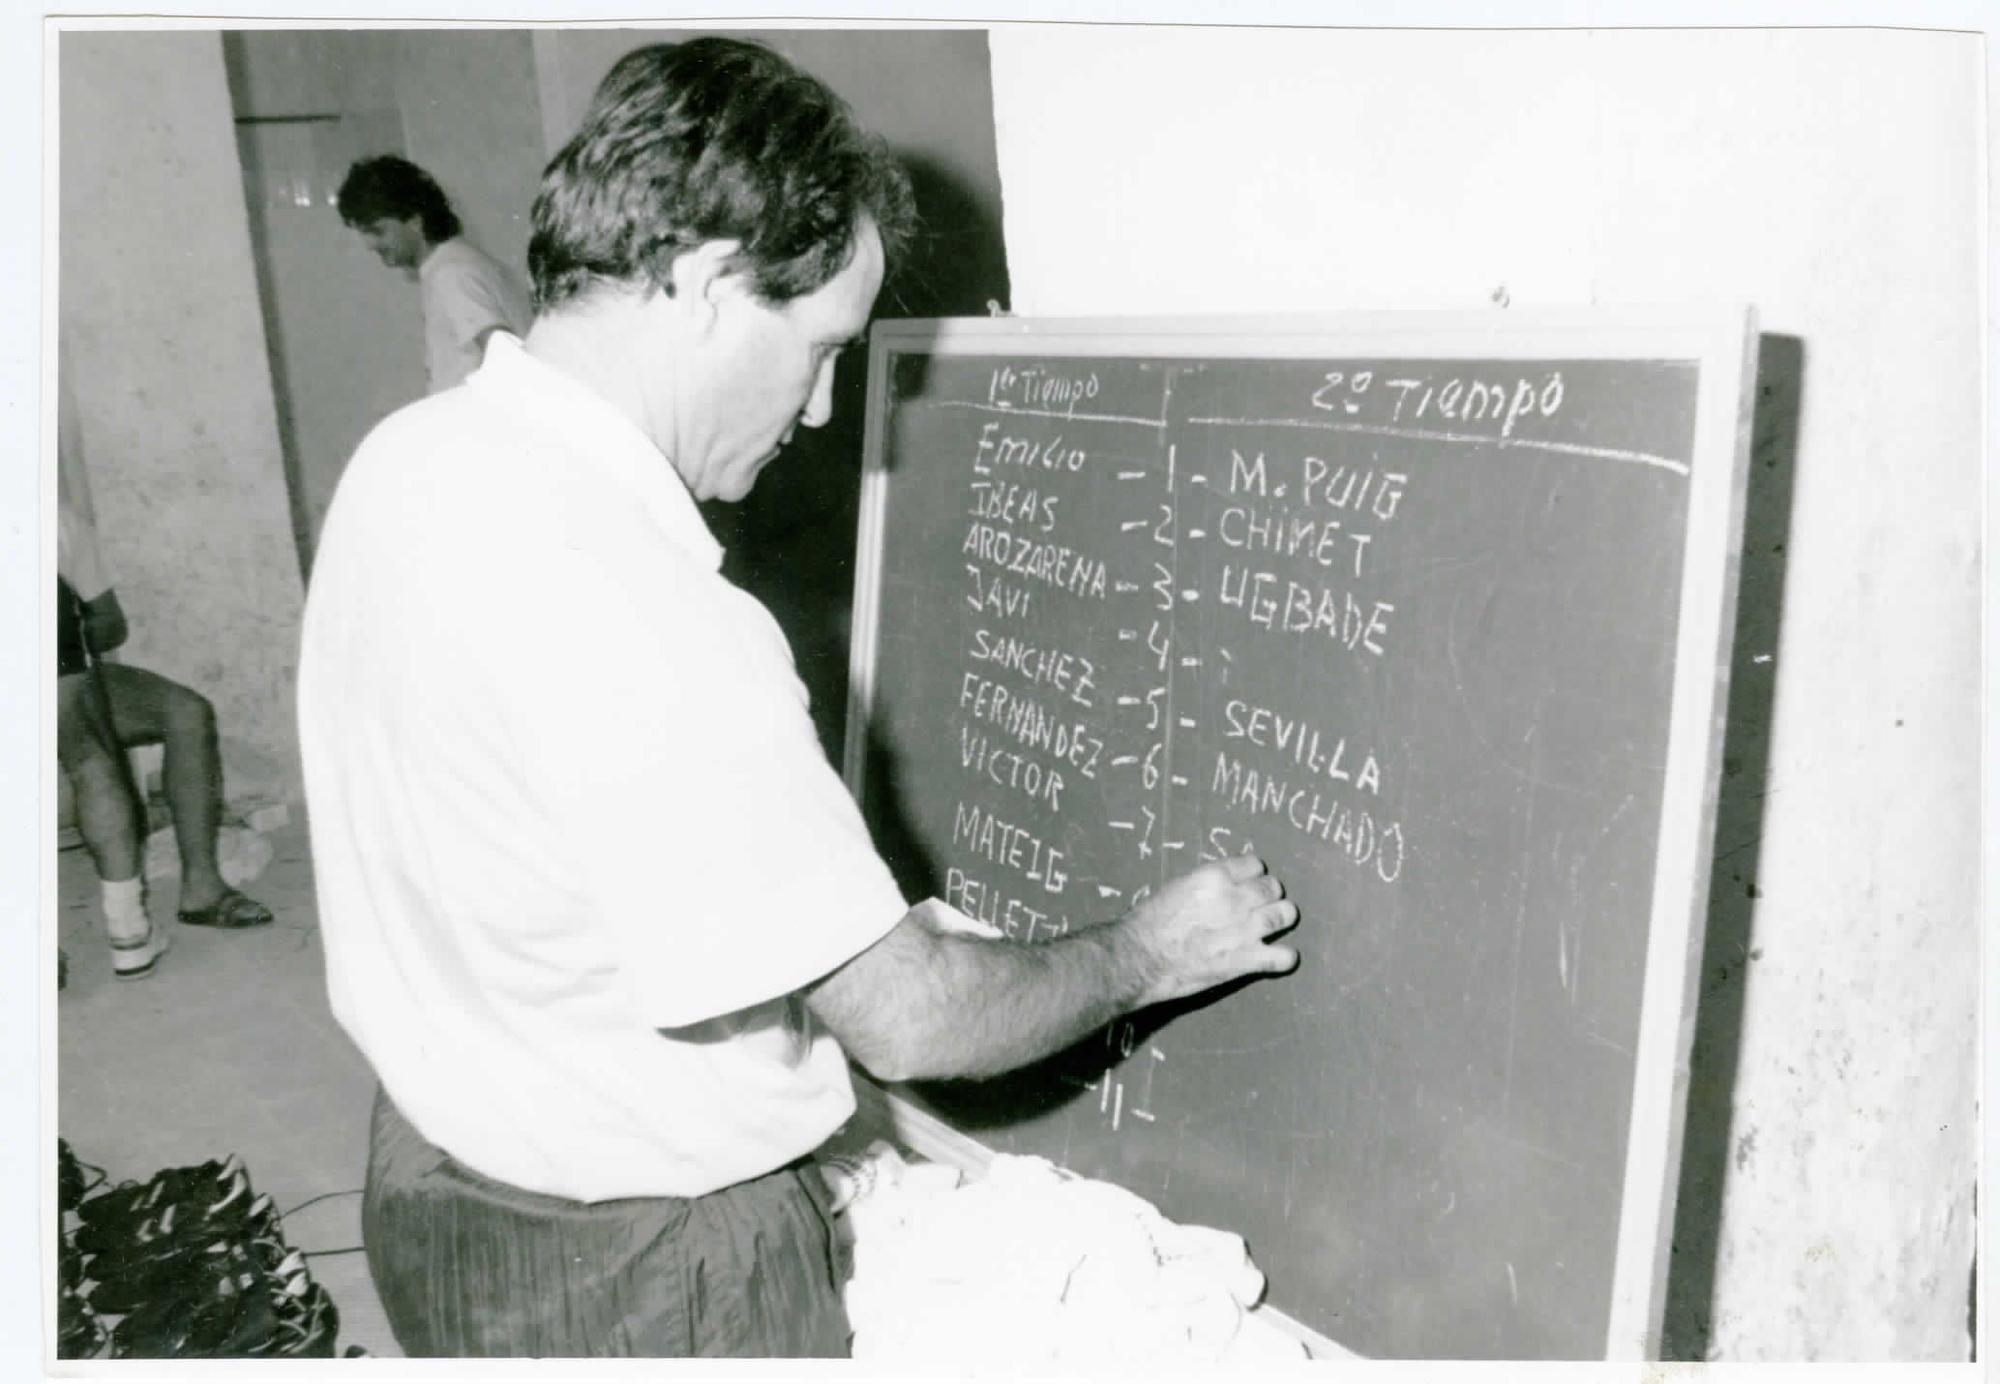 1er Tiempo 2º Tiempo
Emilio - 1 - M. PUIG
IBEAS - 2 - CHIMET
AROZARENA - 3 - UGBADE
JAVI - 4 - i
SANCHEZ - 5 - SEVILLA
FERNANDEZ - 6 - MANCHADO
VICTOR - 7 - SA
MATEIG -
PELLETI
10 -
- 11 -